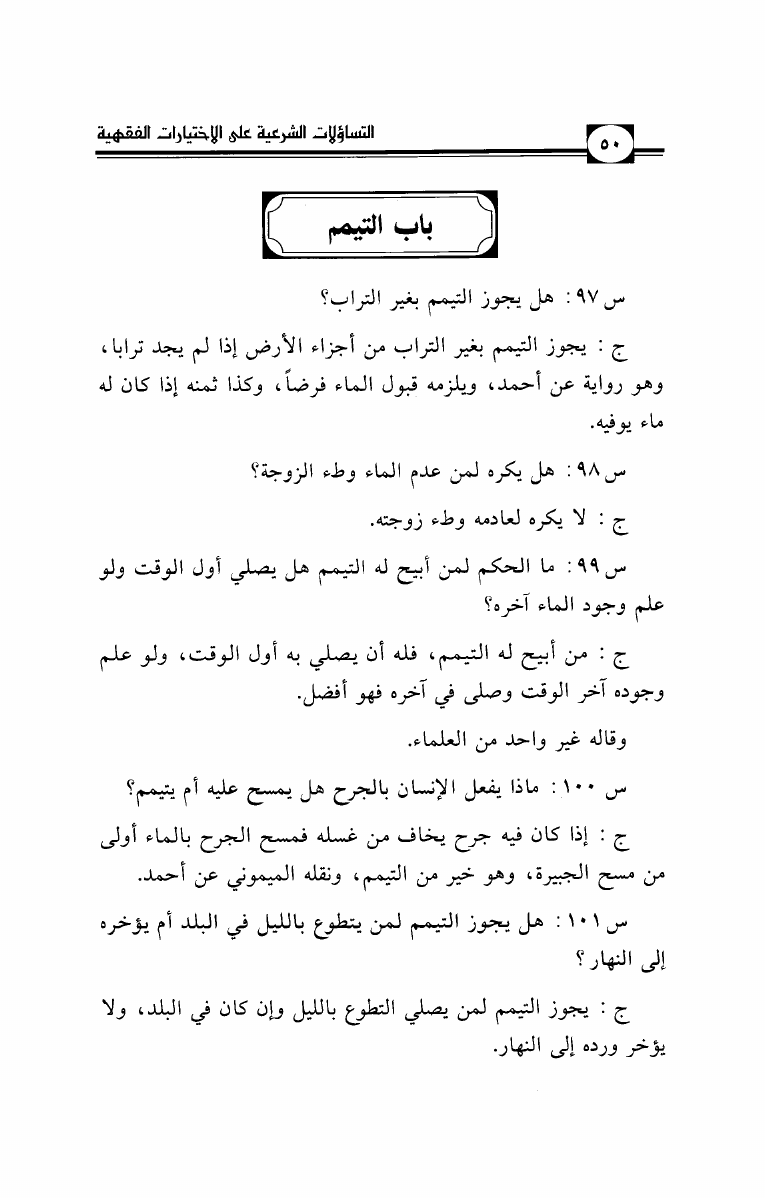 التساؤلات الشرعية على الاختيارات الفقهية
٥٠
باب التيمم
س٩٧: هل يجوز التيمم بغير التراب؟
ج : يجوز التيمم بغير التراب من أجزاء الأرض إذا لم يجد ترابا،
وهو رواية عن أحمد، ويلزمه قبول الماء فرضاً، وكذا ثمنه إذا كان له
ماء يوفيه.
س٩٨: هل يكره لمن عدم الماء وطء الزوجة؟
ج : لا يكره لعادمه وطء زوجته.
س٩٩: ما الحكم لمن أبيح له التيمم هل يصلي أول الوقت ولو
علم وجود الماء آخره؟
ج : من أبيح له التيمم، فله أن يصلي به أول الوقت، ولو علم
وجوده آخر الوقت وصلى في آخره فهو أفضل.
وقاله غير واحد من العلماء.
س ١٠٠: ماذا يفعل الإنسان بالجرح هل يمسح عليه أم يتيمم؟
ج : إذا كان فيه جرح يخاف من غسله فمسح الجرح بالماء أولى
من مسح الجبيرة، وهو خير من التيمم، ونقله الميموني عن أحمد.
س١٠١: هل يجوز التيمم لمن يتطوع بالليل في البلد أم يؤخره
إلى النهار ؟
ج : يجوز التيمم لمن يصلي التطوع بالليل وإن كان في البلد، ولا
يؤخر ورده إلى النهار.